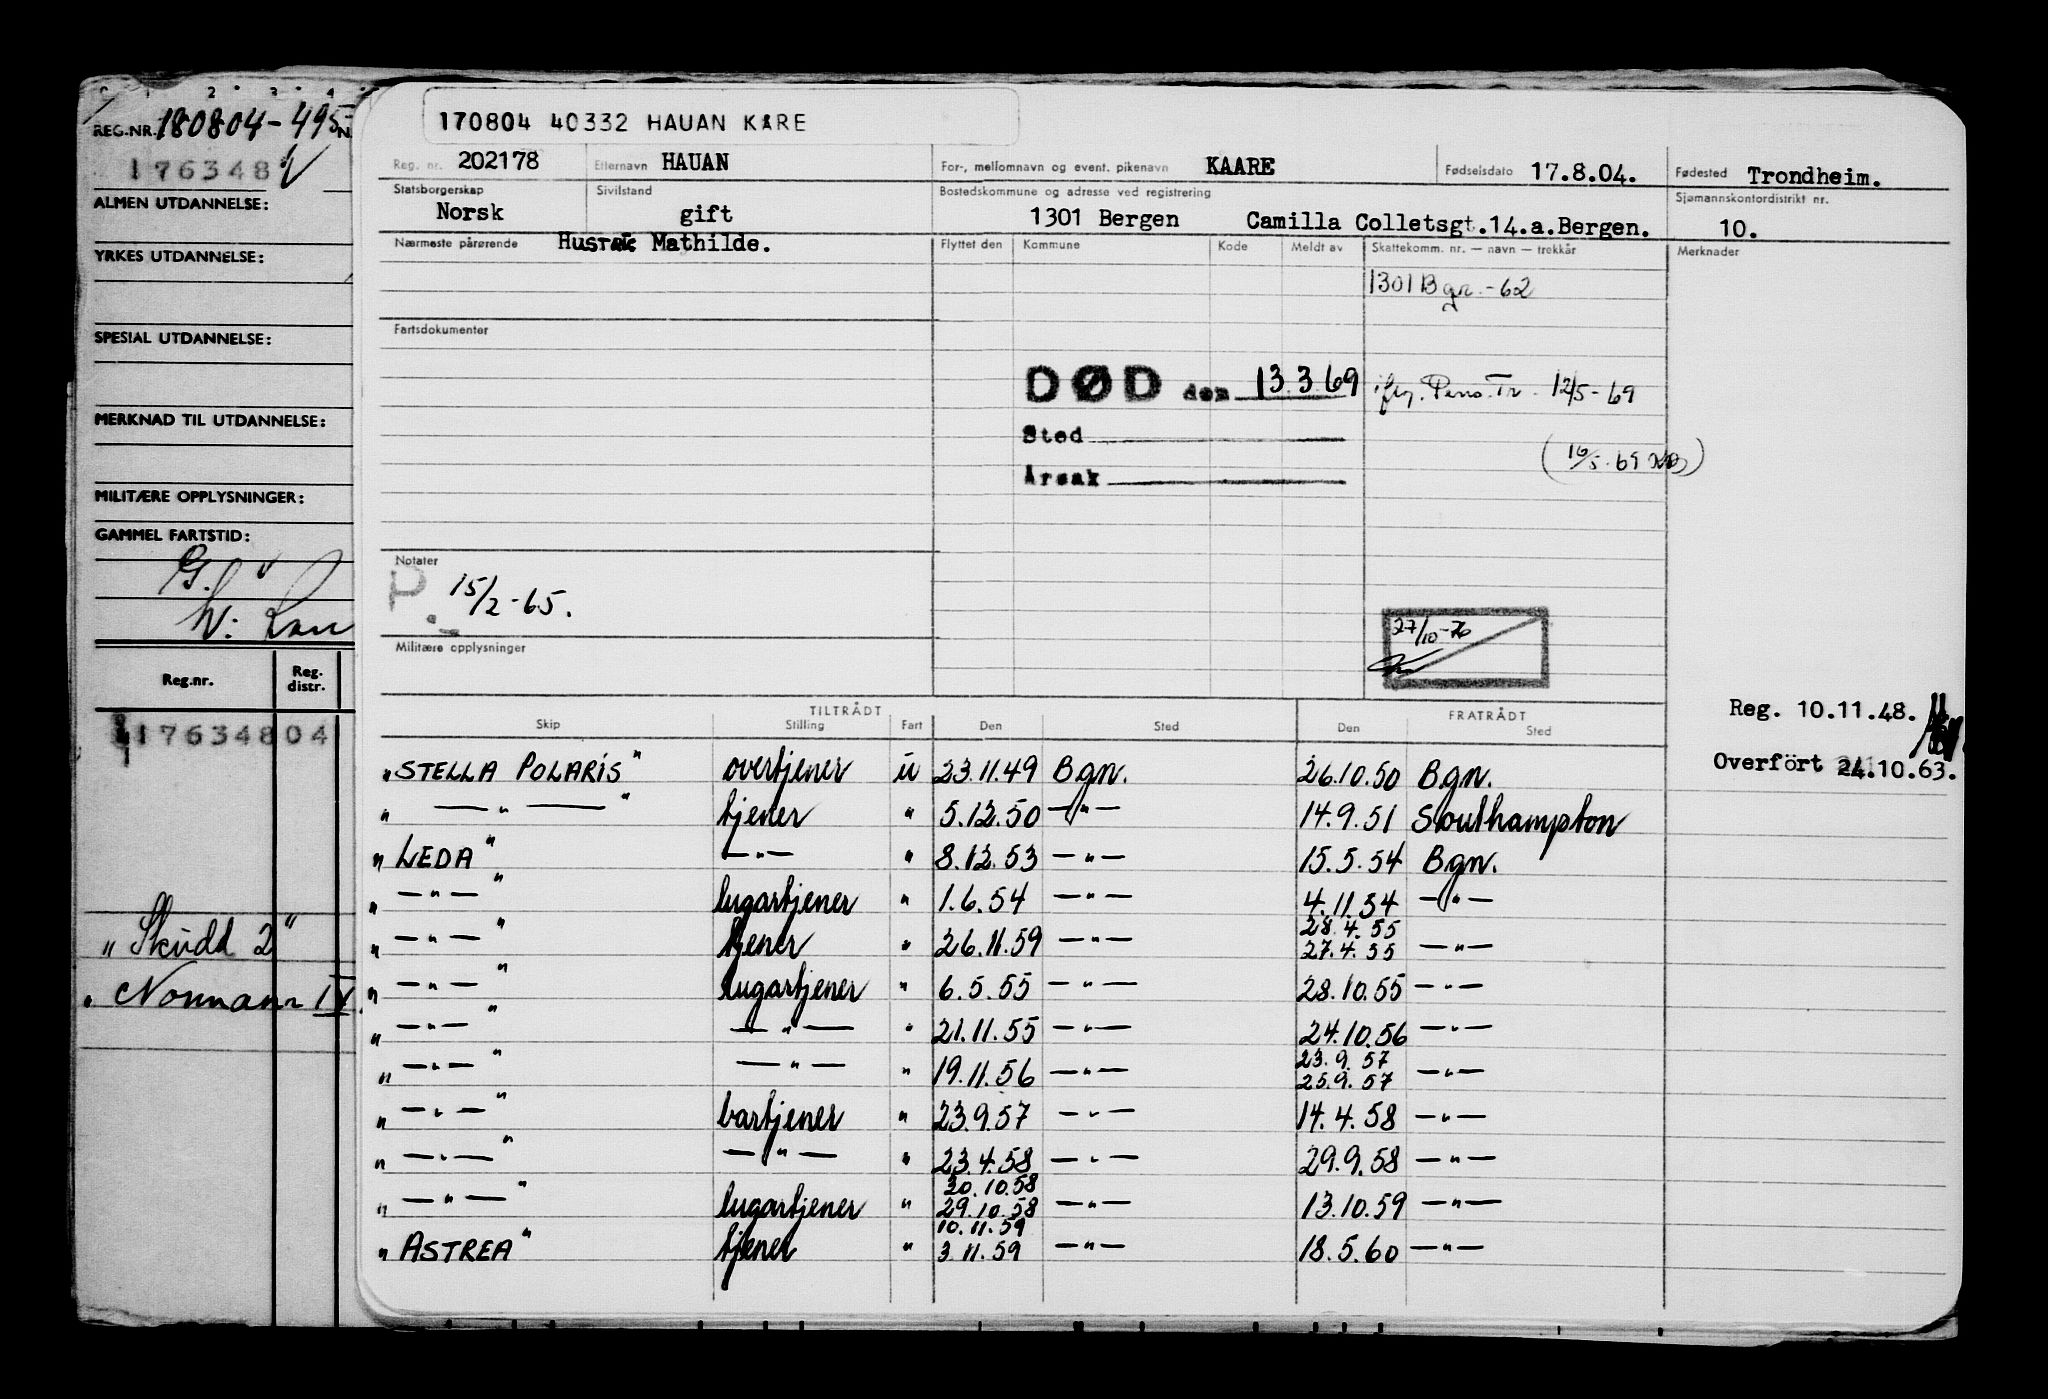 REG.NR. 180804-495 N.
176348
ALMEN UTDANNELSE:
YRKES UTDANNELSE:
SPESIAL UTDANNELSE:
MERKNAD TIL UTDANNELSE:
MILITÆRE OPPLYSNINGER:
GAMMEL FARTSTID:
G.
Reg.nr. Reg. distr.
17634804
"Skudd 2"
" Norman IV
170804 40332 HAUAN KARE
Reg. nr. 202178 Etternavn HAUAN For-, mellomnavn og event. pikenavn KAARE Fødselsdato 17.8.04. Fødested Trondheim.
Statsborgerskap Sivilstand Bostedskommune og adresse ved registrering Sjømannskontordistrikt nr.
Norsk gift 1301 Bergen Camilla Colletsgt.14.a.Bergen. 10.
Nærmeste pårørende Hustru Mathilde. Flyttet den Kommune Kode Meldt av Skattekomm. nr. — navn — trekkår Merknader
1301 Bgn.-62
Fartsdokumenter
DØD den 13.3.69 ifлg. Pens.Tr. 12/5-69
Sted
(16/5.69)
Årsak
Notater
P. 15/2-65.
27/10-76
Militære opplysninger
Reg. 10.11.48.
Overfört 24.10.63.
TILTRÅDT FRATRÅDT
Skip Stilling Fart Den Sted Den Sted
"STELLA POLARIS" overtjener u 23.11.49 Bgn. 26.10.50 Bgn.
" — " — " tjener " 5.12.50 —"— 14.9.51 Southampton
"LEDA" —"— " 8.12.53 —"— 15.5.54 Bgn.
" —"— " lugartjener " 1.6.54 —"— 4.11.54 —"—
28.4.55
" —"— " tjener " 26.11.59 —"— 27.4.55 —"—
" —"— " lugartjener " 6.5.55 —"— 28.10.55 —"—
" —"— " —"— " 21.11.55 —"— 24.10.56 —"—
23.9.57
" —"— " —"— " 19.11.56 —"— 25.9.57 —"—
" —"— " bartjener " 23.9.57 —"— 14.4.58 —"—
" —"— " —"— " 23.4.58 —"— 29.9.58 —"—
30.10.58
" —"— " lugartjener " 29.10.58 —"— 13.10.59 —"—
10.11.59
"ASTREA" tjener " 3.11.59 —"— 18.5.60 —"—